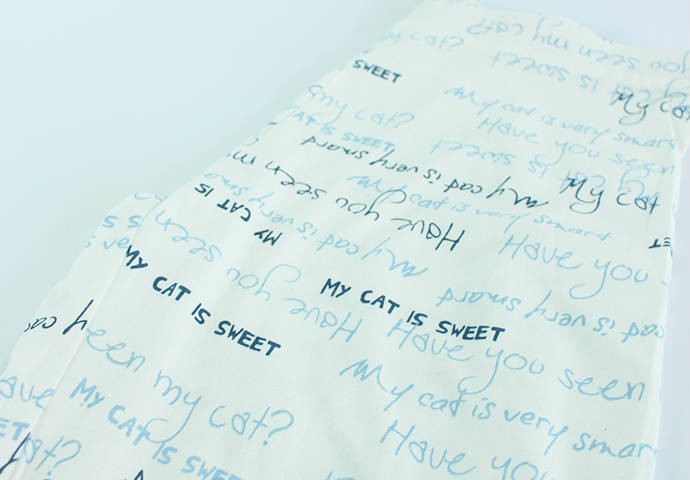 you seen my cat?
my cat?
cat is sweet
SWEET
My cat
my cat?
My cat is very smart
CAT IS SWEET
Have you seen
My cat is very smart
cat is sweet
My cat
My cat is very smart
Have you seen my
MY CAT IS
My cat is very smart
Have you
Have you seen
MY CAT IS SWEET
MY CAT IS SWEET
cat is very smart
Have you seen
seen my cat?
My cat is very smart
MY CAT IS SWEET
Have you
cat?